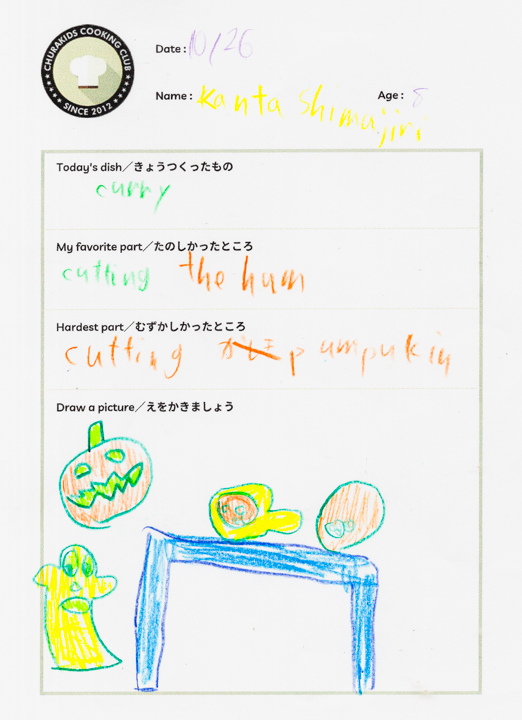 CHURAKIDS COOKING CLUB
SINCE 2012
Date : 10/26
Name : Kanta Shimajiri Age : 8
Today's dish／きょうつくったもの
curry
My favorite part／たのしかったところ
cutting the ham
Hardest part／むずかしかったところ
cutting pumpukin
Draw a picture／えをかきましょう